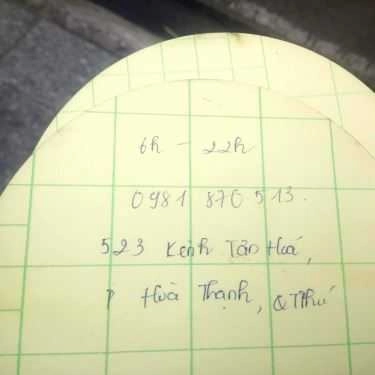 6h - 22h
0981 870 513.
523 Kênh Tân Hoá,
P Hoà Thạnh, Q TPhú